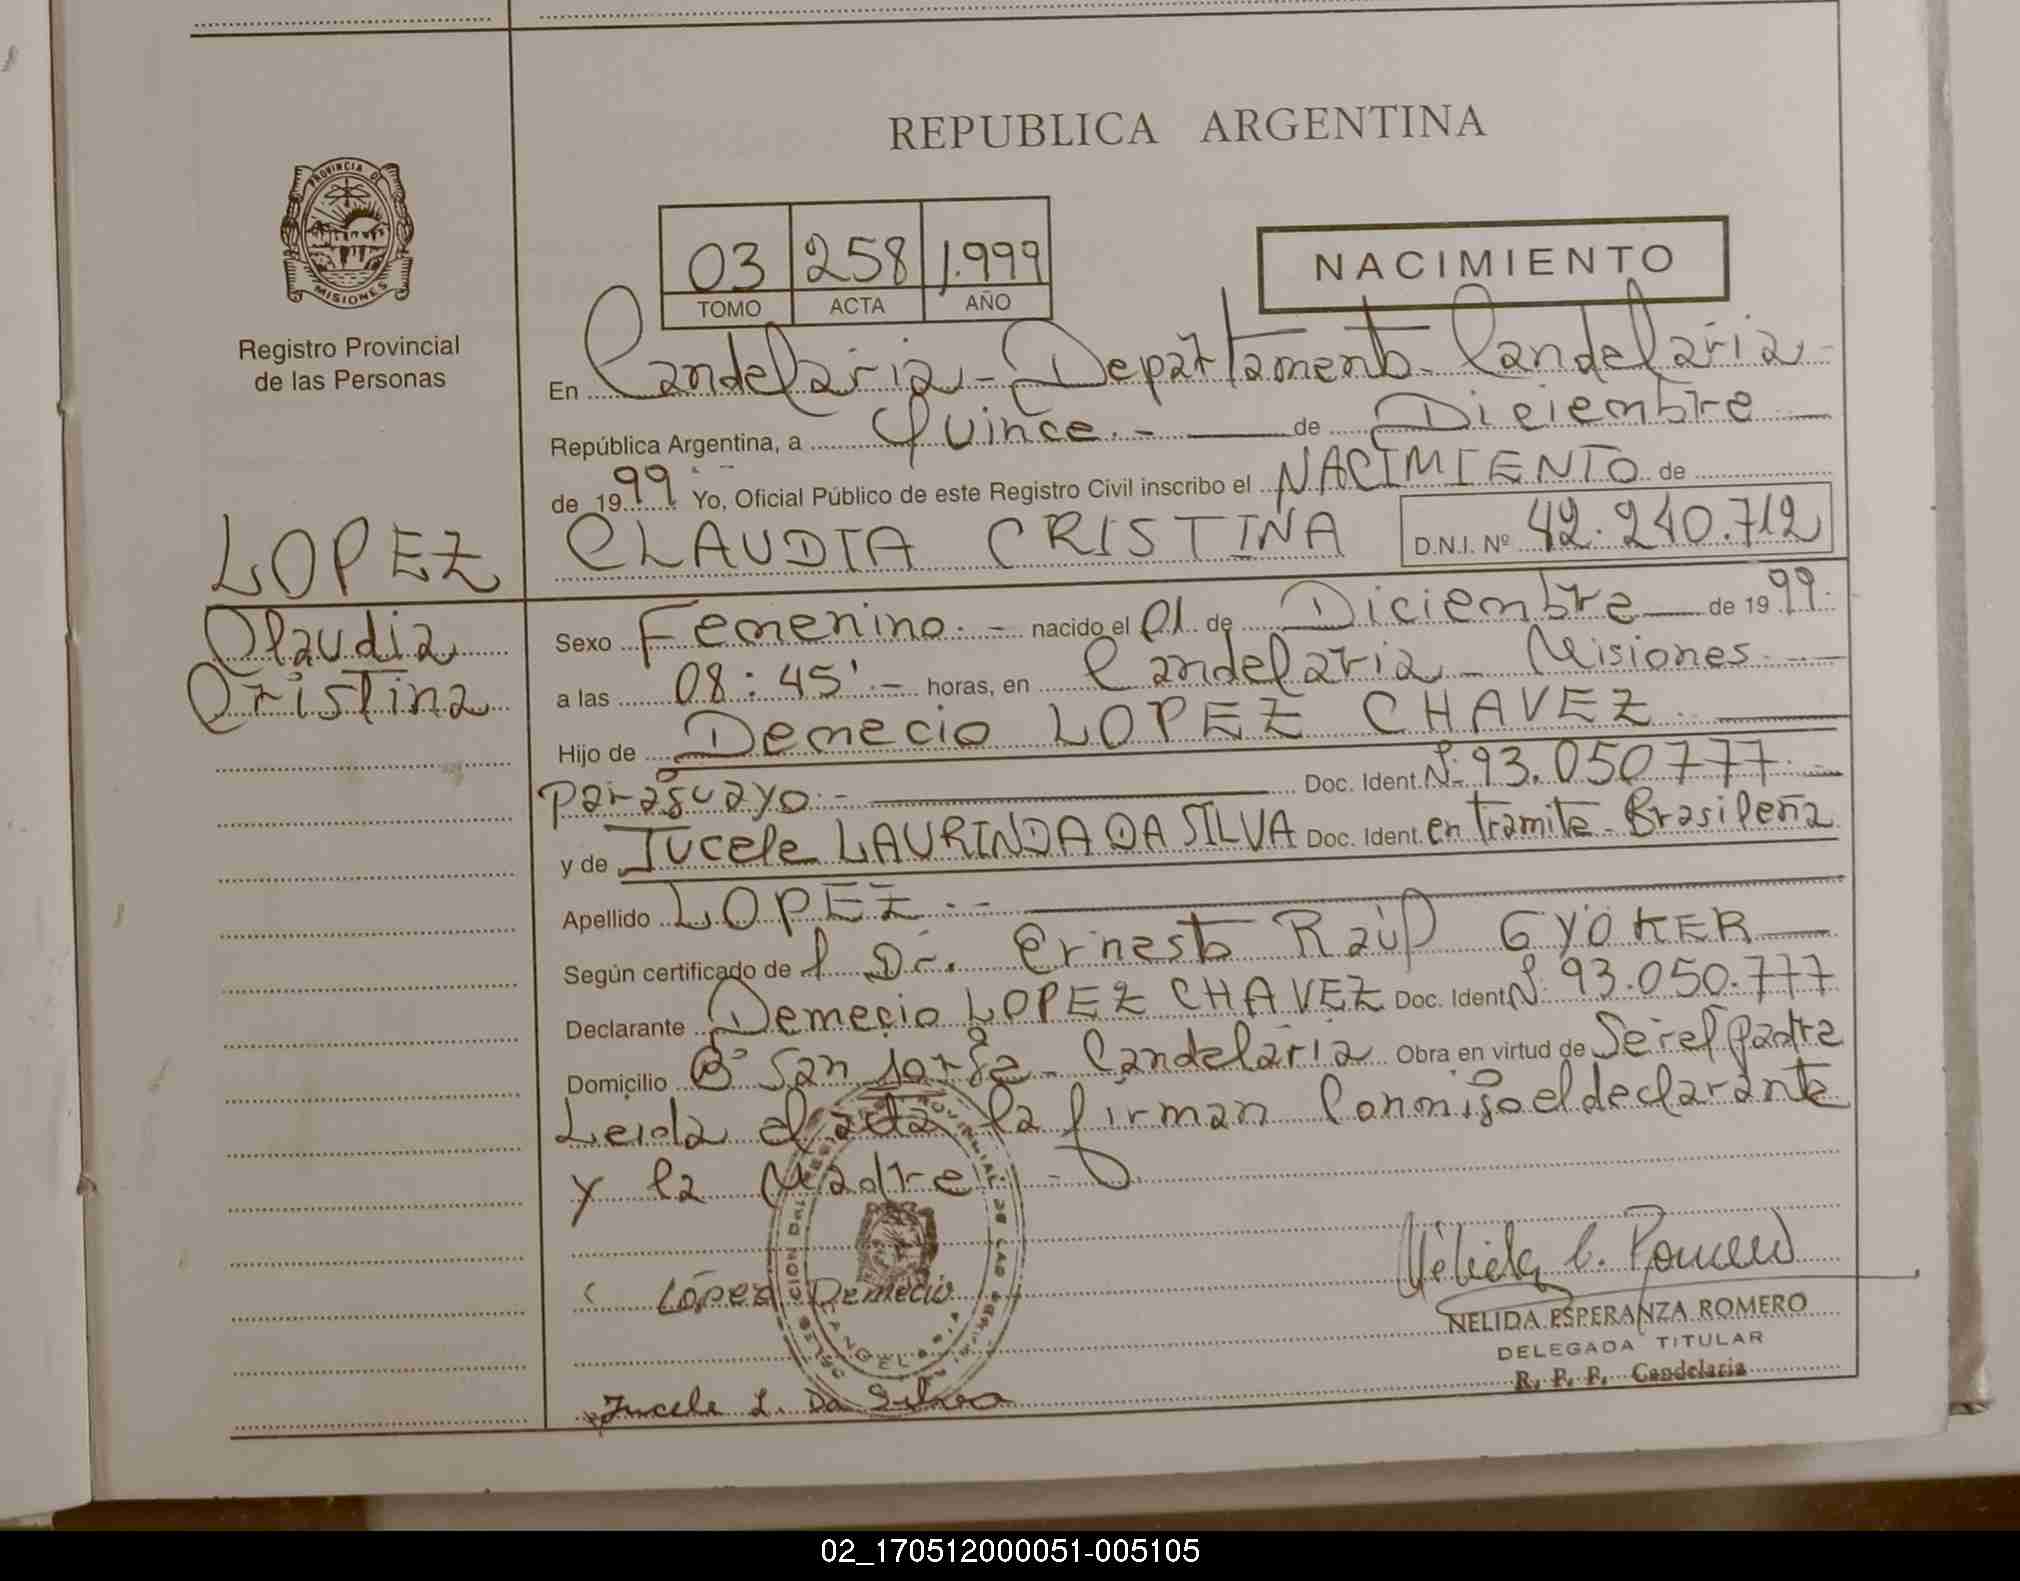 REPUBLICA ARGENTINA
PROVINCIA DE
MISIONES
Registro Provincial
de las Personas
03 258 1.999
TOMO ACTA AÑO
NACIMIENTO
En Candelaria - Departamento Candelaria -
República Argentina, a Quince. - de Diciembre
de 1999 Yo, Oficial Público de este Registro Civil inscribo el NACIMIENTO de
LOPEZ
Claudia
Cristina
CLAUDIA CRISTINA D.N.I. Nº 42.240.712
Sexo Femenino. - nacido el 01 de Diciembre de 1999.
a las 08:45'.- horas, en Candelaria - Misiones
Hijo de Demecio LOPEZ CHAVEZ.
paraguayo.- Doc. Ident. Nº 93.050777.
y de Jucele LAURINDA DA SILVA Doc. Ident. en tramite - Brasileña
Apellido LOPEZ.-
Según certificado del Dr. Ernesto Raúl GYÖKER
Declarante Demecio LOPEZ CHAVEZ Doc. Ident Nº 93.050.777
Domicilio Bº San Jorge - Candelaria Obra en virtud de Ser el padre
Leida el acta la firman Conmigo el declarante
y la Madre.-
López Demecio
Nélida E. Romero
NELIDA ESPERANZA ROMERO
DELEGADA TITULAR
R. P. P. Candelaria
Jucele L. Da Silva
02_170512000051-005105